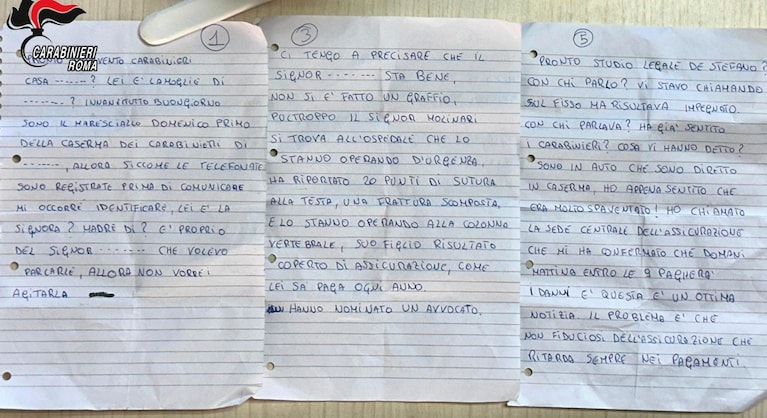 CARABINIERI
ROMA
1
PRONTO INTERVENTO CARABINIERI
CASA ------? LEI E' LA MOGLIE DI
------? INNANZITUTTO BUONGIORNO
SONO IL MARESCIALLO DOMENICO PRIMO
DELLA CASERMA DEI CARABINIERI DI
------, ALLORA SICCOME LE TELEFONATE
SONO REGISTRATE PRIMA DI COMUNICARE
MI OCCORRE IDENTIFICARE, LEI E' LA
SIGNORA? MADRE DI? E' PROPRIO
DEL SIGNOR ------- CHE VOLEVO
PARLARLE, ALLORA NON VORREI
AGITARLA
3
CI TENGO A PRECISARE CHE IL
SIGNOR ------ STA BENE,
NON SI E' FATTO UN GRAFFIO,
PULTROPPO IL SIGNOR MOLINARI
SI TROVA ALL'OSPEDALE CHE LO
STANNO OPERANDO D'URGENZA,
HA RIPORTATO 20 PUNTI DI SUTURA
ALLA TESTA, UNA FRATTURA SCOMPOSTA,
E LO STANNO OPERANDO ALLA COLONNA
VERTEBRALE, SUO FIGLIO RISULTATO
COPERTO DI ASSICURAZIONE, COME
LEI SA PAGA OGNI ANNO.
HANNO NOMINATO UN AVVOCATO.
5
PRONTO STUDIO LEGALE DE STEFANO?
CON CHI PARLO? VI STAVO CHIAMANDO
SUL FISSO MA RISULTAVA IMPEGNATO
CON CHI PARLAVA? HA GIA' SENTITO
I CARABINIERI? COSA VI HANNO DETTO?
SONO IN AUTO CHE SONO DIRETTO
IN CASERMA, HO APPENA SENTITO CHE
ERA MOLTO SPAVENTATO! HO CHIAMATO
LA SEDE CENTRALE DELL'ASSICURAZIONE
CHE MI HA CONFERMATO CHE DOMANI
MATTINA ENTRO LE 9 PAGHERA'
I DANNI E' QUESTA E' UN OTTIMA
NOTIZIA. IL PROBLEMA E' CHE
NON FIDUCIOSI DELL'ASSICURAZIONE CHE
RITARDA SEMPRE NEI PAGAMENTI.